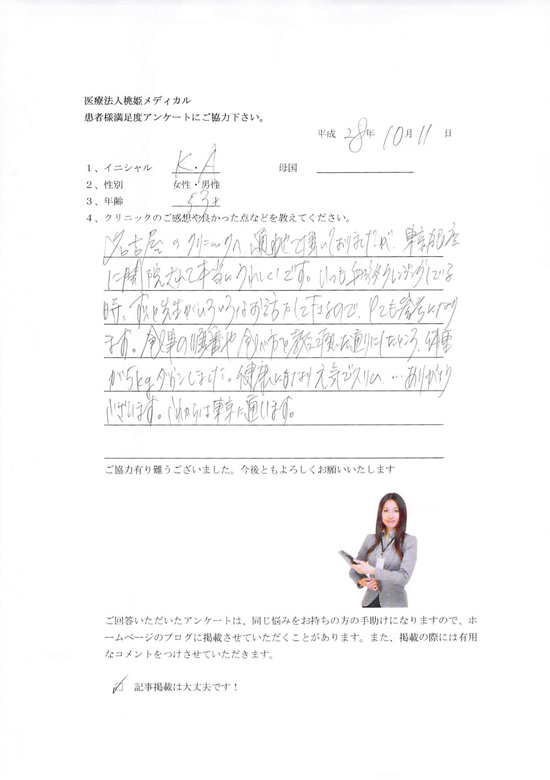 医療法人桃姫メディカル
患者様満足度アンケートにご協力下さい。
平成 28年 10月 11日
1、イニシャル K.A 母国
2、性別 女性・男性
3、年齢 53才
4、クリニックのご感想や良かった点などを教えてください。
名古屋のクリニックへ通わせて頂いておりましたが、東京銀座
に開院されて本当にうれしいです。いつも している
時、 先生がいろいろなお話をして下さるので、とても参考になり
ます。食事の順番や食べ方を教えて頂いた通りにしたところ、体重
が5kgダウンしました。健康にもなり元気でスリム、…ありがとう
ございます。これからは東京に通います。
ご協力有り難うございました。今後ともよろしくお願いいたします
ご回答いただいたアンケートは、同じ悩みをお持ちの方の手助けになりますので、ホ
ームページのブログに掲載させていただくことがあります。また、掲載の際には有用
なコメントをつけさせていただきます。
記事掲載は大丈夫です！